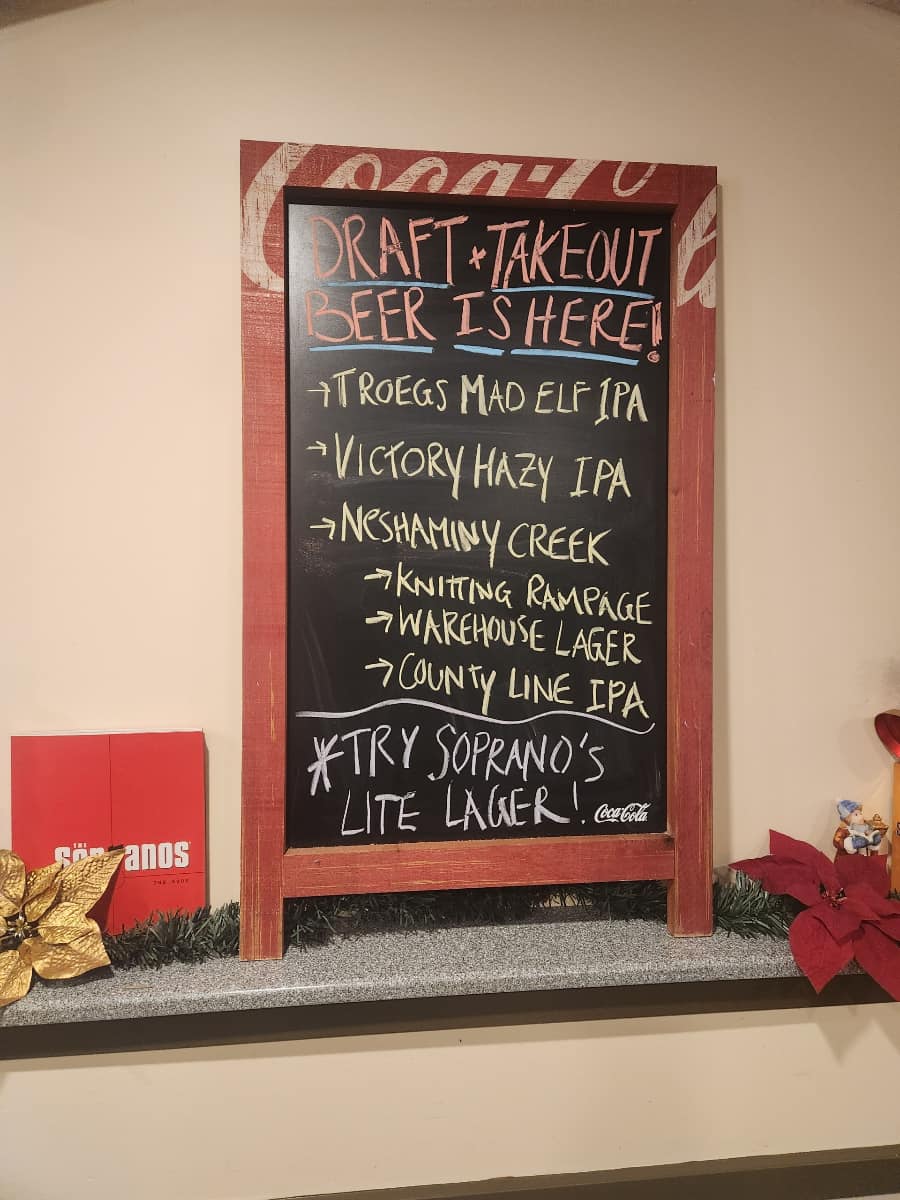 Coca-Cola
DRAFT + TAKEOUT
BEER IS HERE!
→TROEGS MAD ELF IPA
→VICTORY HAZY IPA
→NESHAMINY CREEK
→KNITTING RAMPAGE
→WAREHOUSE LAGER
→COUNTY LINE IPA
*TRY SOPRANO'S
LITE LAGER!
Coca-Cola
THE
SOPRANOS
THE BOOK